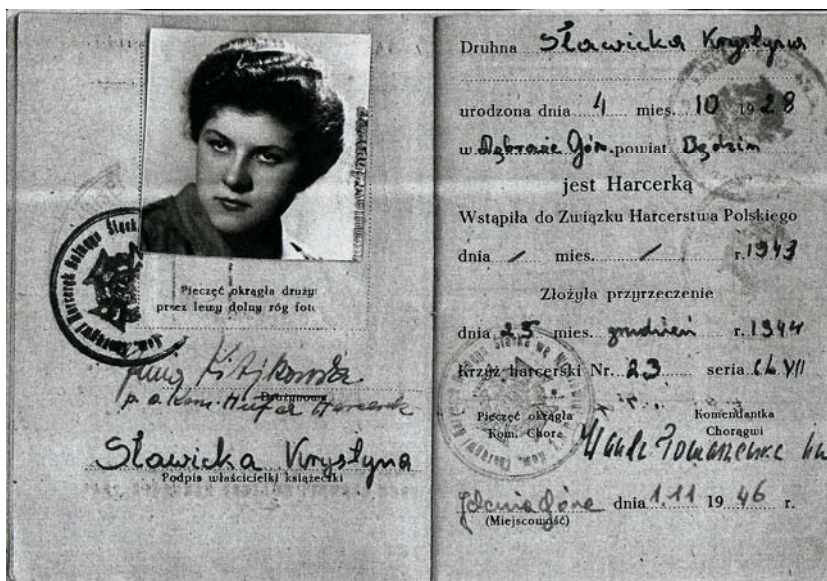 Pieczęć okrągła druży:
przez lewy dolny róg foto.
Drużynowa
p. o. Kom. Hufca Harcerek
Sławicka Krystyna
Podpis właścicielki książeczki
Druhna Sławicka Krystyna
urodzona dnia 4 mies. 10 1928
w Dąbrowie Górn. powiat Będzin
jest Harcerką
Wstąpiła do Związku Harcerstwa Polskiego
dnia / mies. / r. 1943
Złożyła przyrzeczenie
dnia 25 mies. grudzień r. 1944
Krzyż harcerski Nr. 23 seria CLVII
Pieczęć okrągła Komendantka
Kom. Chorą. Chorągwi
Jelenia Góra dnia 1.11 1946 r.
(Miejscowość)